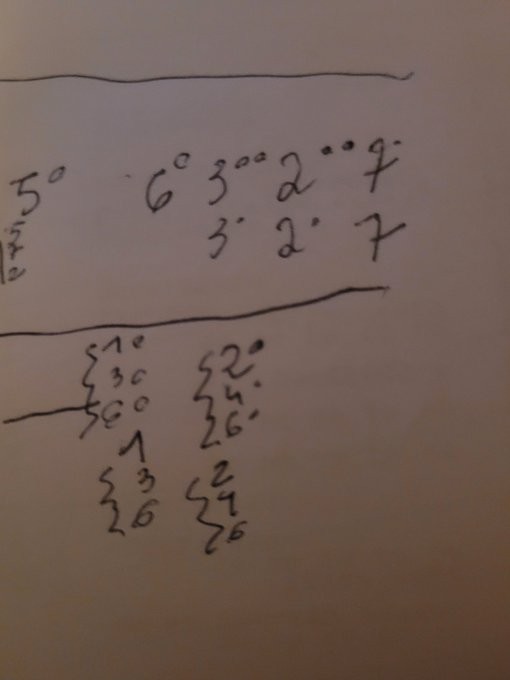 5° 6° 3°° 2•• 7•
3• 2• 7
{1° {2•
{3° {4•
{6° {6•
1
{3 {2
{6 {4
{6